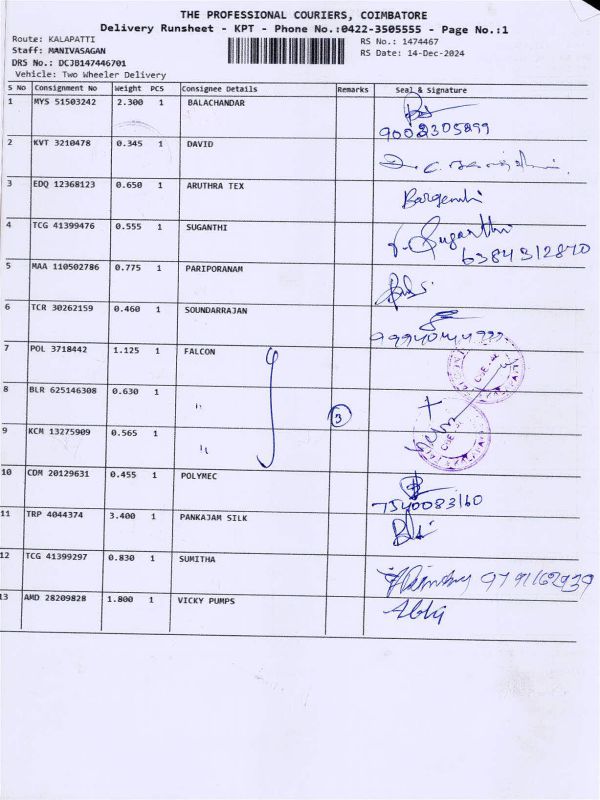 THE PROFESSIONAL COURIERS, COIMBATORE
Delivery Runsheet - KPT - Phone No.:0422-3505555 - Page No.:1
Route: KALAPATTI
Staff: MANIVASAGAN
DRS No.: DCJB147446701
Vehicle: Two Wheeler Delivery
RS No.: 1474467
RS Date: 14-Dec-2024
S No Consignment No Weight PCS Consignee Details Remarks Seal & Signature
1 MYS 51503242 2.300 1 BALACHANDAR
2 KVT 3210478 0.345 1 DAVID
3 EDQ 12368123 0.650 1 ARUTHRA TEX
4 TCG 41399476 0.555 1 SUGANTHI Suganthi
6384312870
5 MAA 110502786 0.775 1 PARIPORANAM
6 TCR 30262159 0.460 1 SOUNDARRAJAN
7 POL 3718442 1.125 1 FALCON
8 BLR 625146308 0.630 1 " 3
9 KCM 13275909 0.565 1 "
10 CDM 20129631 0.455 1 POLYMEC
7540083160
11 TRP 4044374 3.400 1 PANKAJAM SILK
12 TCG 41399297 0.830 1 SUMITHA 9791162939
13 AMD 28209828 1.800 1 VICKY PUMPS